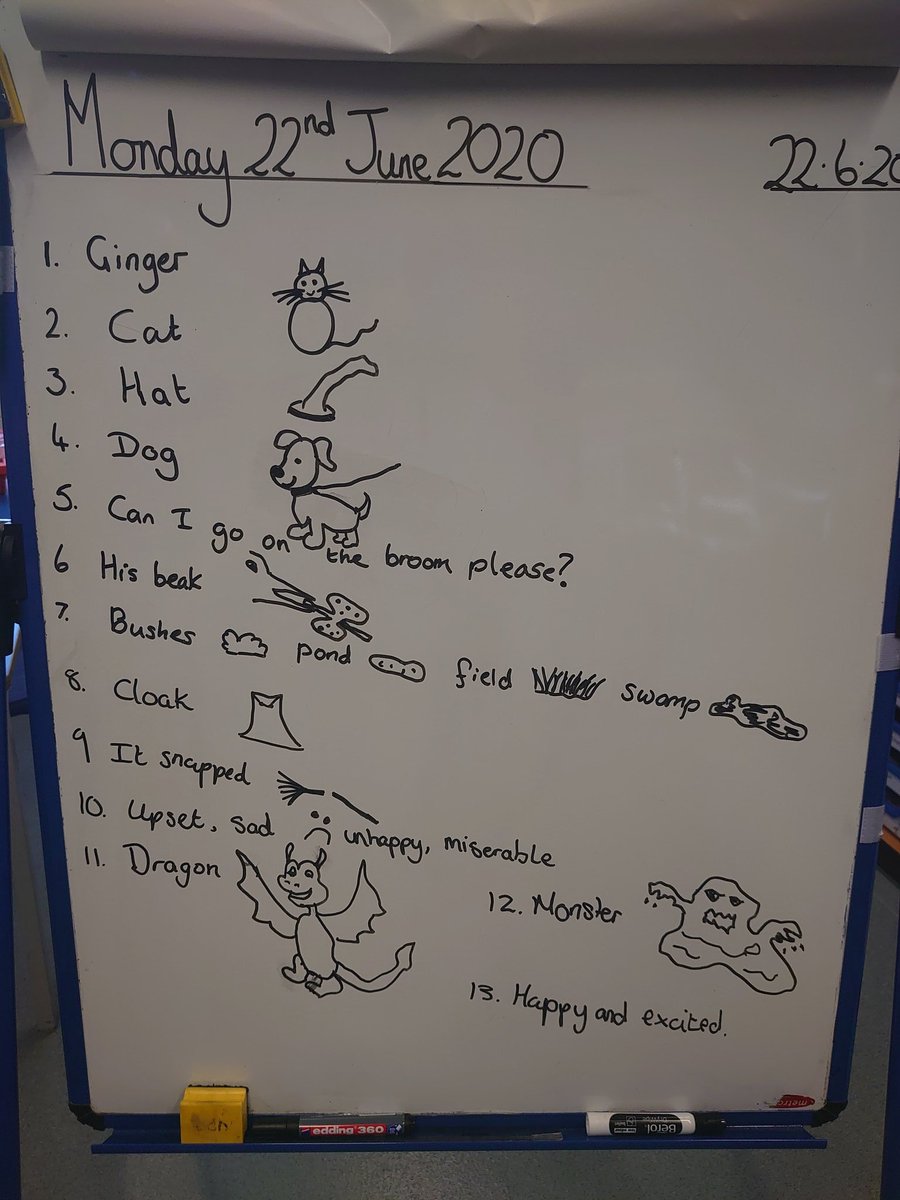 Monday 22nd June 2020
22.6.20
1. Ginger
2. Cat
3. Hat
4. Dog
5. Can I go on the broom please?
6 His beak
7. Bushes pond field swamp
8. Cloak
9 It snapped
10. Upset, sad unhappy, miserable
11. Dragon
12. Monster
13. Happy and excited.
metro
edding 360
Berol